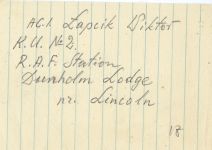 AC.1. Łapcik Wiktor
R.U. № 2.
R.A.F. Station
Dunholm Lodge
nr. Lincoln
18